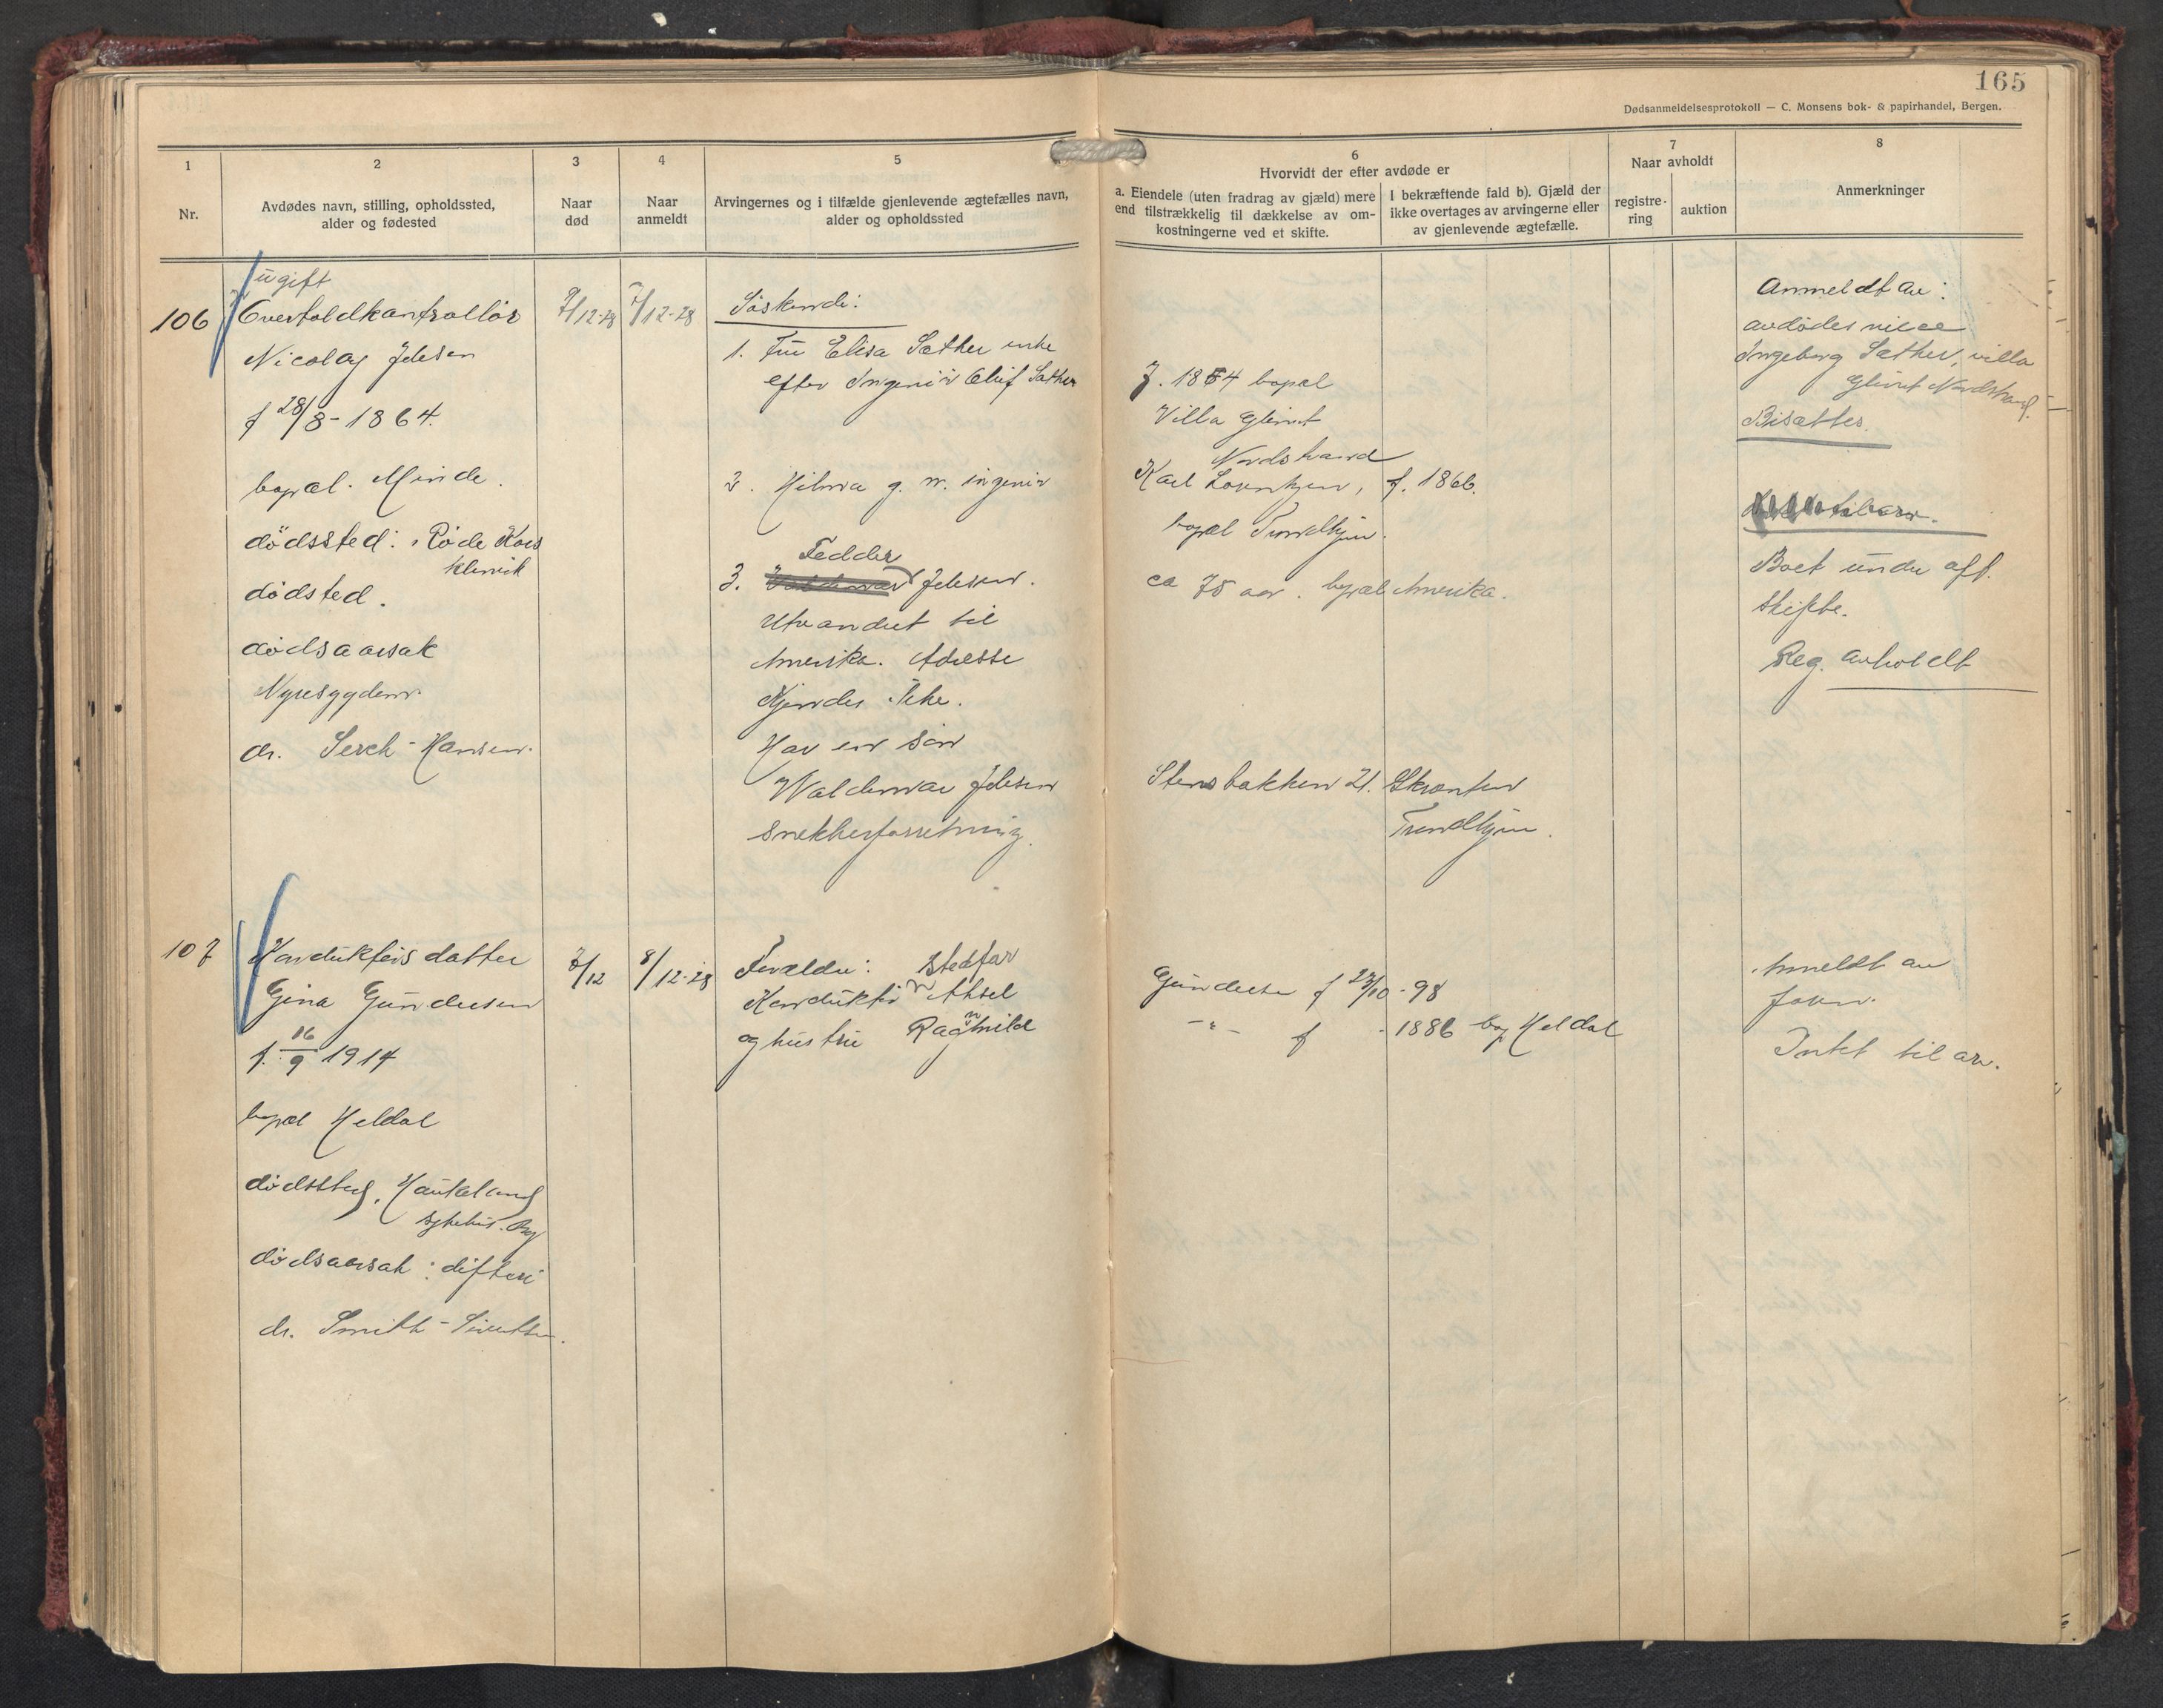 165
Dødsanmeldelsesprotokoll — C. Monsens bok- & papirhandel, Bergen.
1
Nr.
2
Avdødes navn, stilling, opholdssted,
alder og fødested
3
Naar
død
4
Naar
anmeldt
5
Arvingernes og i tilfælde gjenlevende ægtefælles navn,
alder og opholdssted
6
Hvorvidt der efter avdøde er
a. Eiendele (uten fradrag av gjæld) mere
end tilstrækkelig til dækkelse av om-
kostningerne ved et skifte.
I bekræftende fald b). Gjæld der
ikke overtages av arvingerne eller
av gjenlevende ægtefælle.
7
Naar avholdt
registre-
ring
auktion
8
Anmerkninger
106
ugift
Overtoldkontrollør
Nicolay Jelesen
f 28/8-1864.
bopæl. Minde.
dödssted: Röde Kors
klinik
dödsted.
dödsaarsak
Nyresygdom
dr. Serck-Hansen.
7/12-28
7/12-28
Söskende:
1. Fru Elisa Sæther enke
efter Ingeniör Oluf Sæther
2. Hilma g. m. ingeniör
Fedder
3. Jelesen.
Utvandret til
Amerika. Adresse
Kjendes ikke.
Har en sön
Waldemar Jelesen
Snekkerforretning.
f. 1854 bopæl
Villa Glimt
Nordstrand
Karl Lorentzen, f. 1866.
bopæl Trondhjem.
ca 75 aar. bopæl Amerika.
Stensbakken 21. Skrænten
Trondhjem.
Anmeldt av:
avdödes niece
Ingeborg Sæther, villa
Glimt Nordstrand.
Bisættes.
til arv.
Boet under off.
skifte.
Reg. avholdt
107
Konduktörs datter
Gina Gundersen
f. 16/9 1914
bopæl Heldal
dödssted. Haukeland
sykehus. Brg
dödsaarsak: difteri
dr. Smith-Sivertsen.
7/12
8/12-28
Forældre: Stedfar
Konduktör Aksel
og hustru Ragnhild
Gundersen f 27/10-98
-"- f -1886 bop Heldal
Anmeldt av
foran.
Intet til arv.